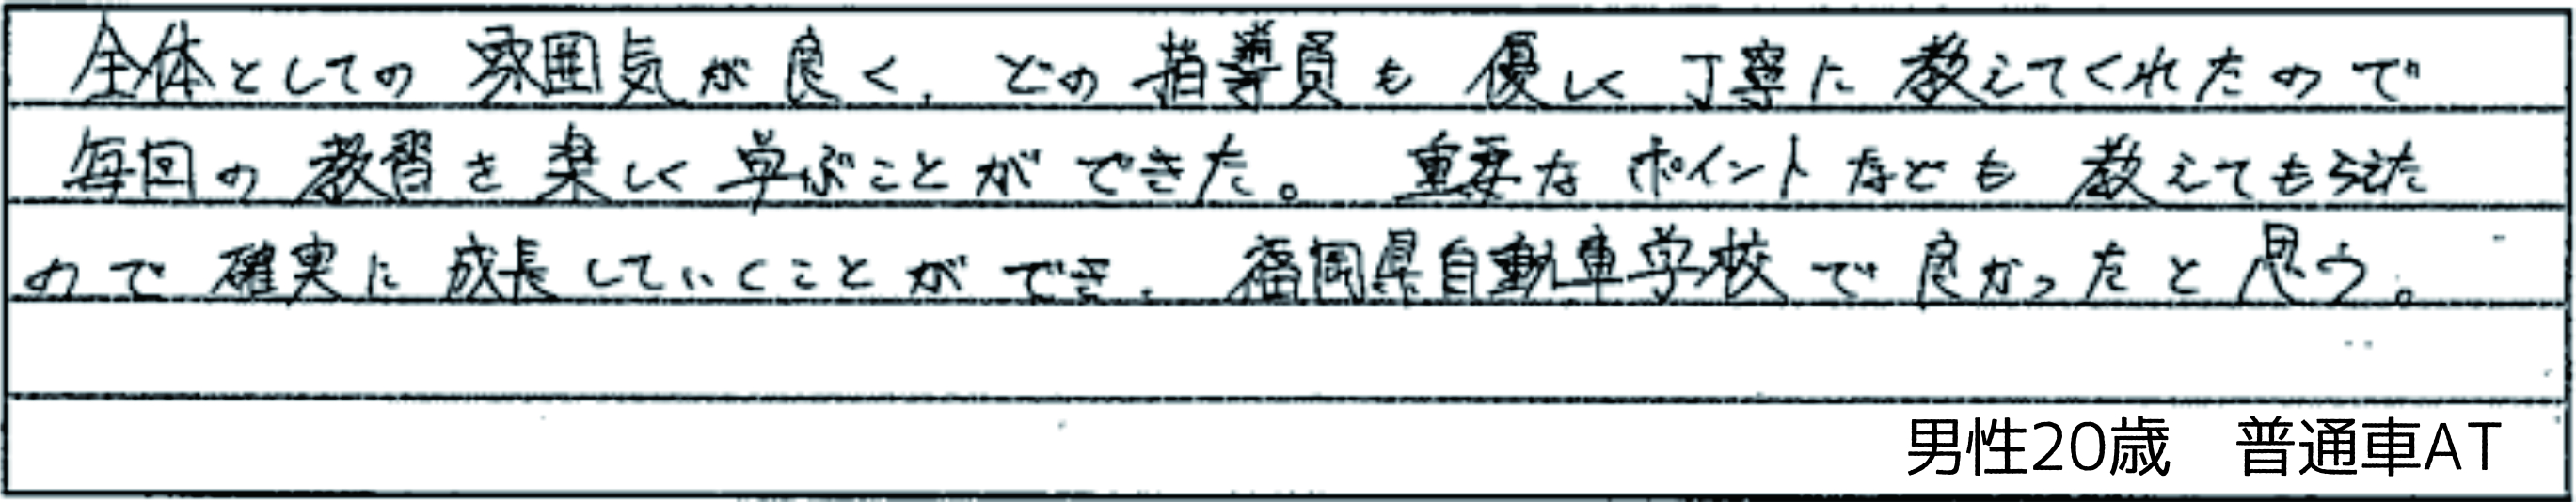 全体としての雰囲気が良く、どの指導員も優しく丁寧に教えてくれたので
毎回の教習を楽しく学ぶことができた。重要なポイントなども教えてもらえた
ので確実に成長していくことができ、福岡県自動車学校で良かったと思う。
男性20歳　普通車AT